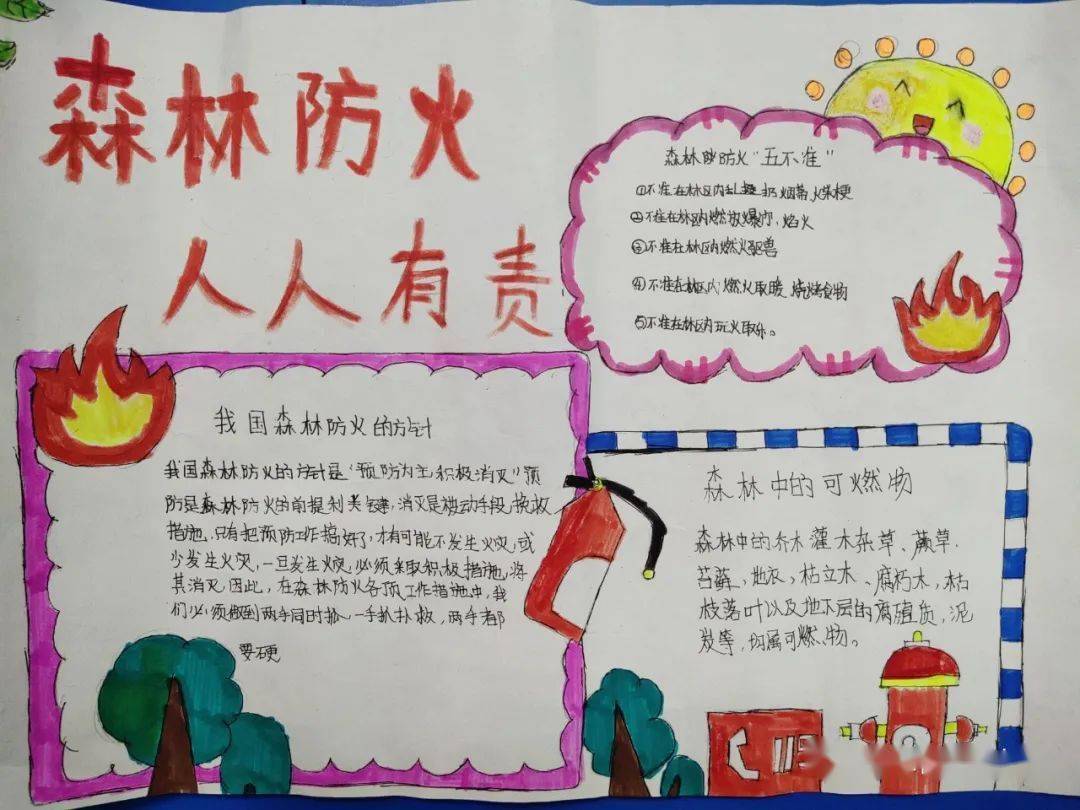 森林防火
人人有责
森林防火“五不准”
①不准在林区内乱扔烟蒂,火柴梗
②不准在林区内燃放爆竹,焰火
③不准在林区内燃火驱兽
④不准在林区内燃火取暖 烧烤食物
⑤不准在林区内玩火取乐。
我国森林防火的方针
我国森林防火的方针是“预防为主,积极消灭”预
防是森林防火的前提和关键,消灭是被动手段,挽救
措施,只有把预防工作搞好了,才有可能不发生火灾,或
少发生火灾,一旦发生火灾,必须采取积极措施,将
其消灭.因此,在森林防火各项工作措施中,我
们必须做到两手同时抓,一手抓扑救,两手都
要硬
森林中的可燃物
森林中的乔木灌木杂草、蕨草.
苔藓、地衣、枯立木、腐朽木,枯
枝落叶以及地下层的腐殖质,泥
炭等,均属可燃物。
119